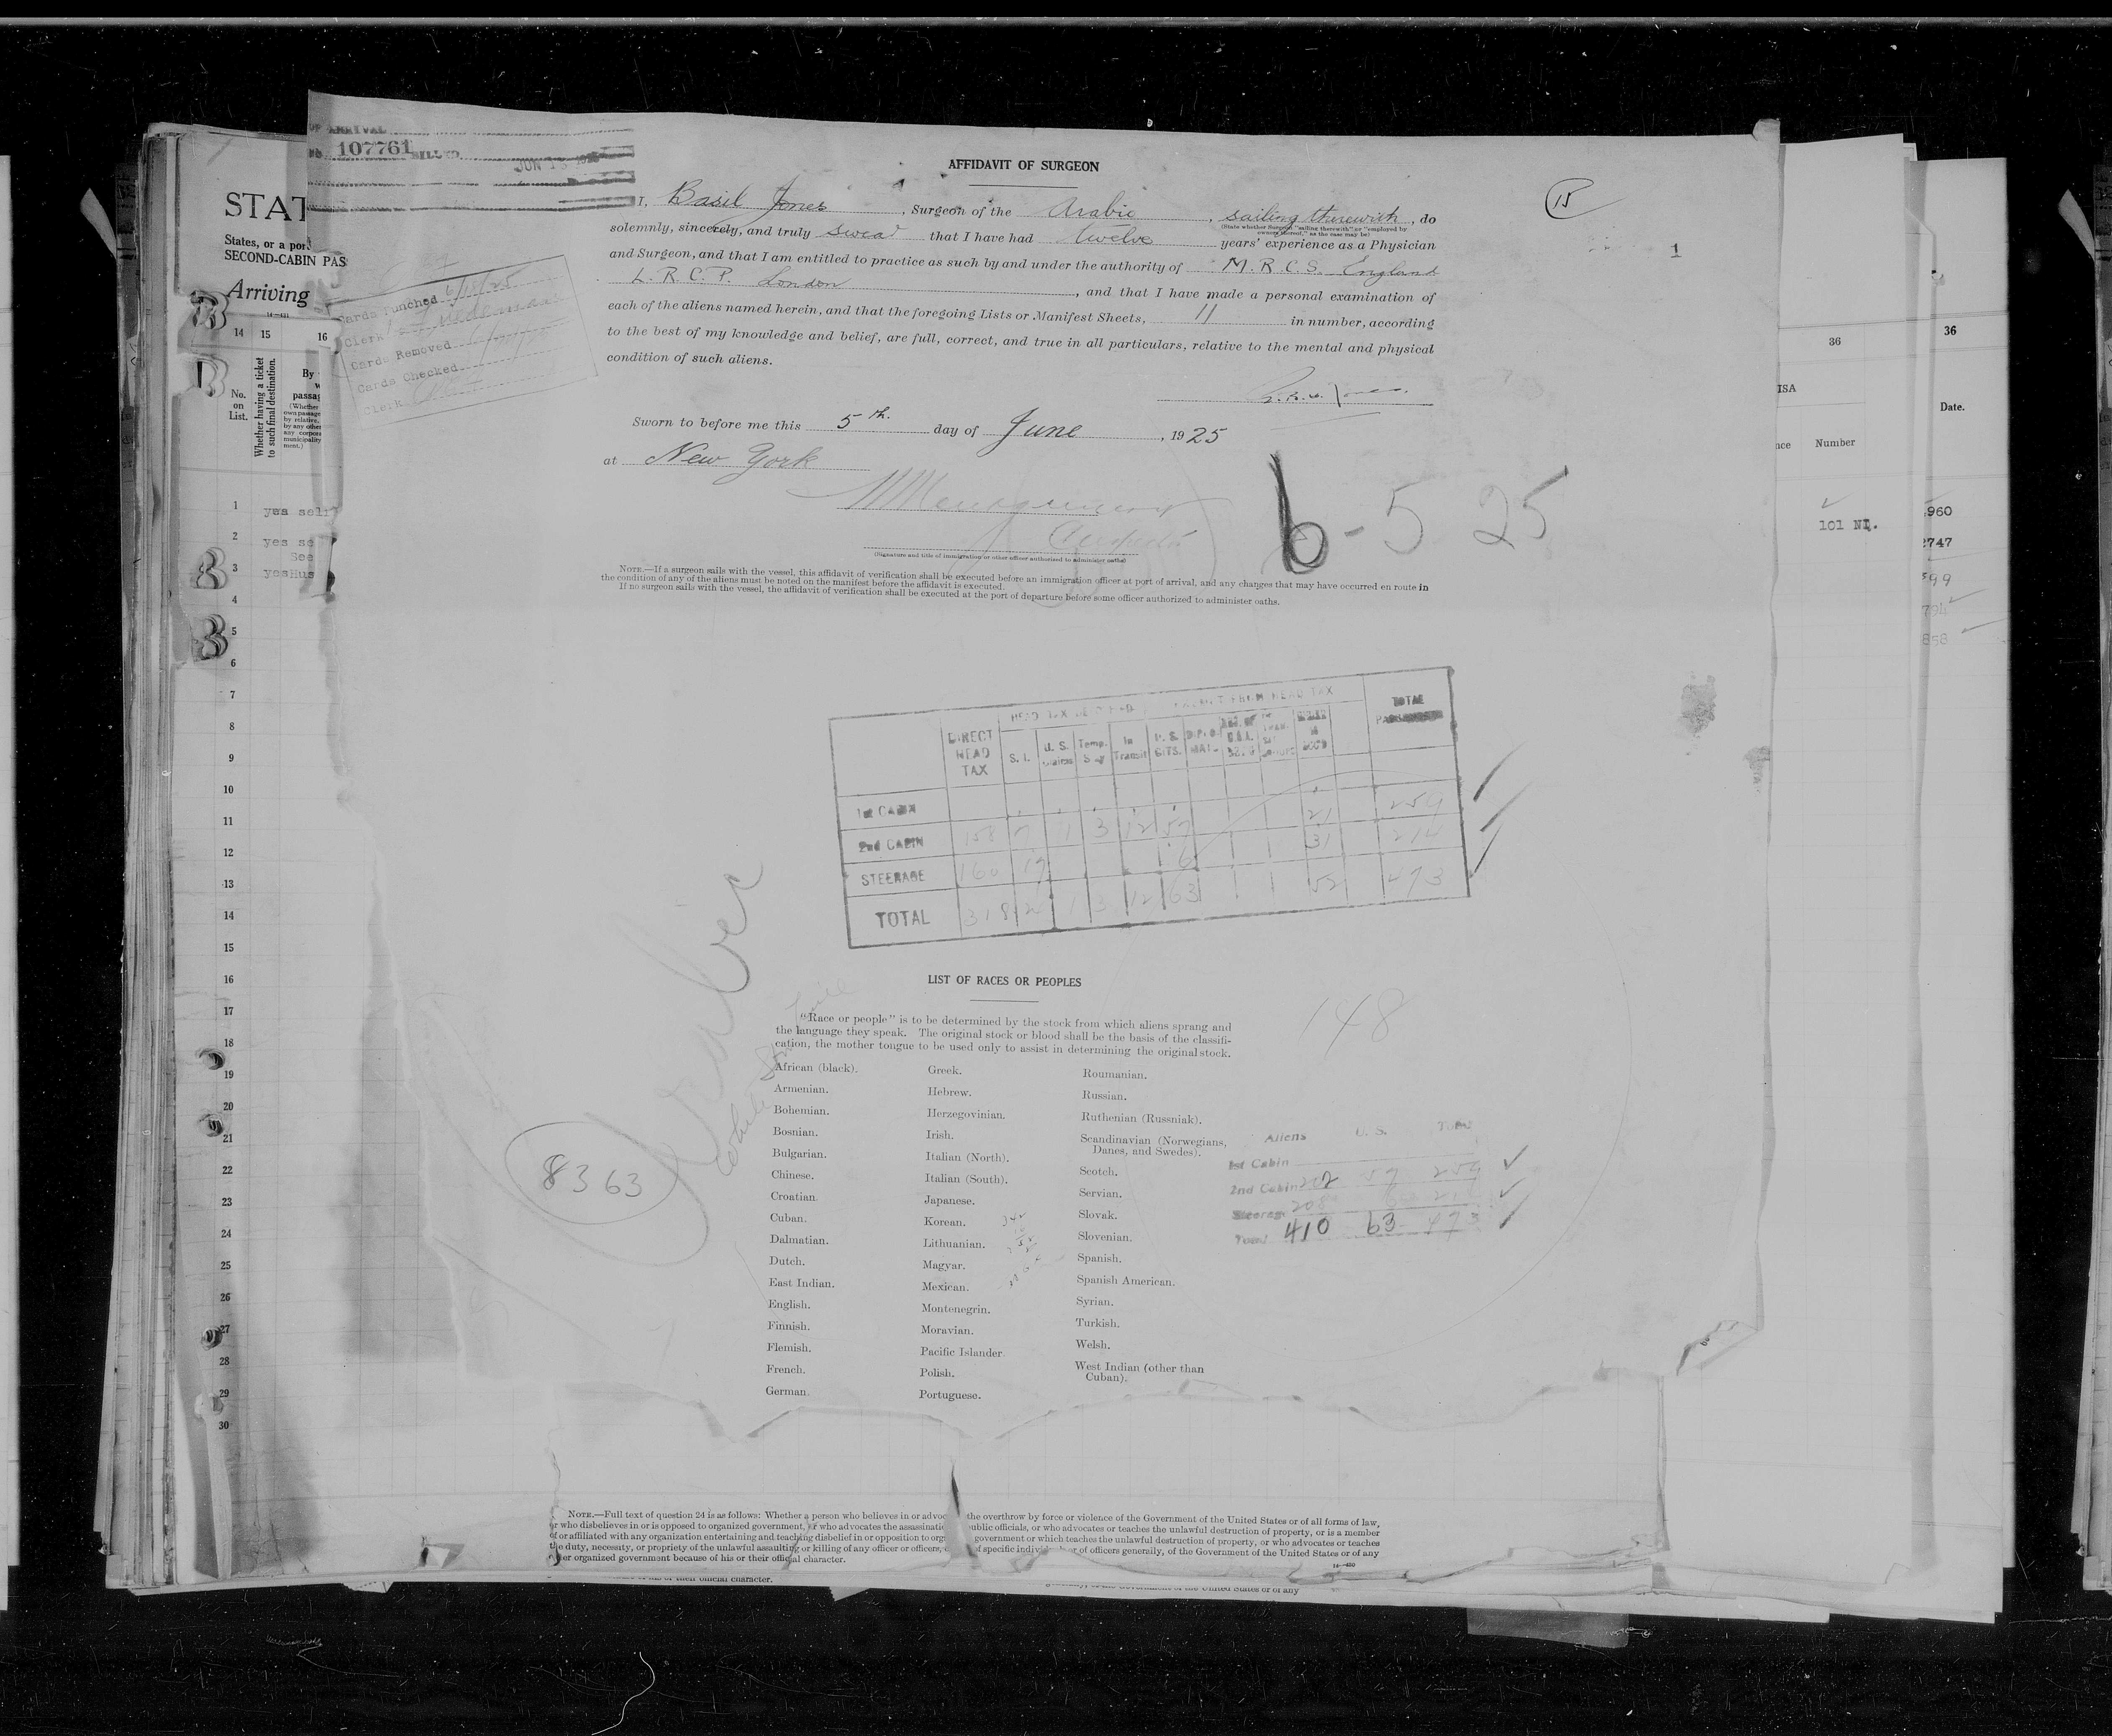 107761
AFFIDAVIT OF SURGEON
15
1
I, Basil Jones, Surgeon of the Arabic, sailing therewith, do
(State whether Surgeon "sailing therewith" or "employed by
owners thereof," as the case may be)
solemnly, sincerely, and truly swear that I have had twelve years' experience as a Physician
and Surgeon, and that I am entitled to practice as such by and under the authority of M.R.C.S. England
L.R.C.P. London, and that I have made a personal examination of
each of the aliens named herein, and that the foregoing Lists or Manifest Sheets, 11 in number, according
to the best of my knowledge and belief, are full, correct, and true in all particulars, relative to the mental and physical
condition of such aliens.
Sworn to before me this 5th. day of June, 1925
at New York
6-5 25
(Signature and title of immigration or other officer authorized to administer oaths)
NOTE.—If a surgeon sails with the vessel, this affidavit of verification shall be executed before an immigration officer at port of arrival, and any changes that may have occurred en route in
the condition of any of the aliens must be noted on the manifest before the affidavit is executed.
If no surgeon sails with the vessel, the affidavit of verification shall be executed at the port of departure before some officer authorized to administer oaths.
STAT
States, or a port
SECOND-CABIN PAS
Arriving
Cards Punched 6/15/25
Clerk
Cards Removed
Cards Checked
Clerk
14 15 16
No.
on
List.
Whether having a ticket
to such final destination.
By
passag
(Whether
own passage
by relative,
by any other
any corpora
municipality
ment.)
1 yes self
2 yes se
See
3 yesHus
4
5
6
7
8
9
10
11
12
13
14
15
16
17
18
19
20
21
22
23
24
25
26
27
28
29
30
36
36
ISA
Date.
nce Number
101 NI.
960
2747
599
794
858
DIRECT HEAD TAX S. I. U. S. Claims Temp. Stay In Transit U. S. CITS. TOTAL
1st CABIN
2nd CABIN 158 7 1 3 12 57 21 259
STEERAGE 160 17 6 31 214
TOTAL 318 24 1 3 12 63 52 473
LIST OF RACES OR PEOPLES
148
"Race or people" is to be determined by the stock from which aliens sprang and
the language they speak. The original stock or blood shall be the basis of the classifi-
cation, the mother tongue to be used only to assist in determining the original stock.
African (black).
Armenian.
Bohemian.
Bosnian.
Bulgarian.
Chinese.
Croatian.
Cuban.
Dalmatian.
Dutch.
East Indian.
English.
Finnish.
Flemish.
French.
German.
Greek.
Hebrew.
Herzegovinian.
Irish.
Italian (North).
Italian (South).
Japanese.
Korean.
Lithuanian.
Magyar.
Mexican.
Montenegrin.
Moravian.
Pacific Islander.
Polish.
Portuguese.
Roumanian.
Russian.
Ruthenian (Russniak).
Scandinavian (Norwegians,
Danes, and Swedes).
Scotch.
Servian.
Slovak.
Slovenian.
Spanish.
Spanish American.
Syrian.
Turkish.
Welsh.
West Indian (other than
Cuban).
8363
Aliens U. S. Total
1st Cabin
2nd Cabin 202 57 259
Steerage 208 6 214
Total 410 63 473
NOTE.—Full text of question 24 is as follows: Whether a person who believes in or advoc the overthrow by force or violence of the Government of the United States or of all forms of law,
or who disbelieves in or is opposed to organized government, or who advocates the assassinatio public officials, or who advocates or teaches the unlawful destruction of property, or is a member
of or affiliated with any organization entertaining and teaching disbelief in or opposition to orga government or which teaches the unlawful destruction of property, or who advocates or teaches
the duty, necessity, or propriety of the unlawful assaulting or killing of any officer or officers, of specific individ or of officers generally, of the Government of the United States or of any
other organized government because of his or their official character.
or their official character.
Government of the United States or of any